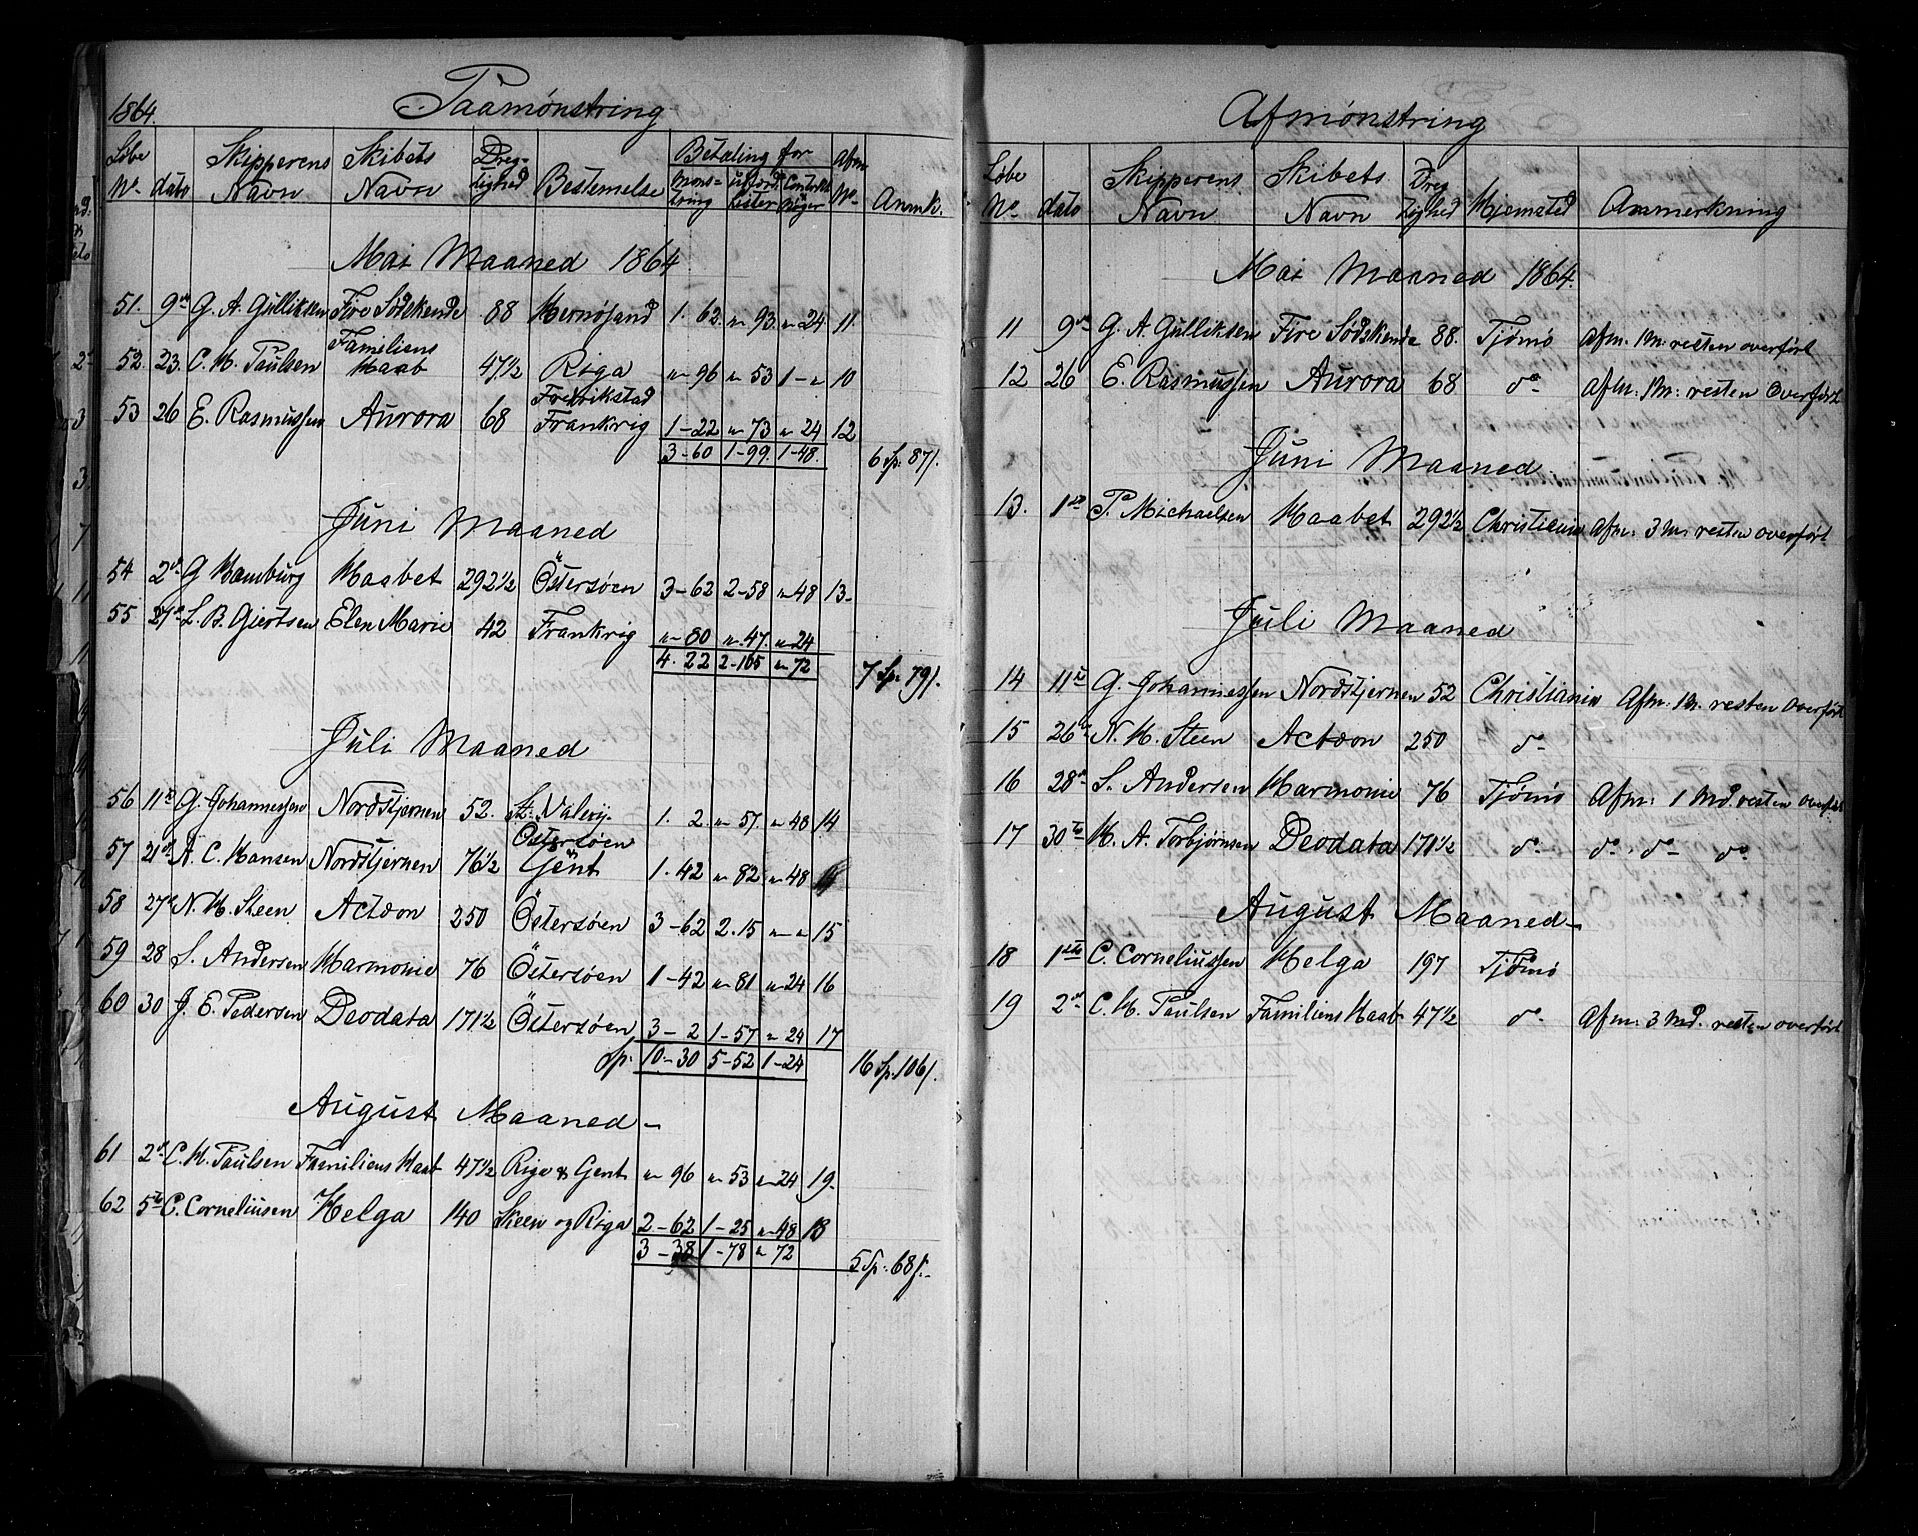 1864. Paamønstring
Løbe No. dato Skipperens Navn Skibets Navn Dreg-tighed Bestemelse Betaling for Møns-tring udførd. Lister Contrakt Bøger Afm. No. Anmk.
Mai Maaned 1864
51. 9de G. A. Gulliksen Fire Sødskende 88 Hernøsand 1. 62. " 93. " 24 11.
52. 23. C. H. Paulsen Familiens Haab 47 1/2 Riga " 96 " 53 1 - " 10
53 26 E. Rasmussen Aurora 68 Fredrikstad Frankrig 1-22 " 73 " 24 12
3-60 1-99. 1-48. 6 Sp: 87/.
Juni Maaned
54 2d. G Hamburg Haabet 292 1/2 Östersøen 3-62 2-58 " 48 13-
55 27de L. B. Giertsen Elen Marie 42 Frankrig " 80 " 47. " 24
4. 22 2-105 " 72 7 Sp: 79/.
Juli Maaned
56 11te G. Johannessen Nordstjernen 52. St. Valery. 1. 2 " 57. " 48 14
57 21de A. C. Hansen Nordstjernen 76 1/2 Östersøen Gent 1. 42 " 82 " 48
58 27de N. H. Steen Actæon 250 Östersøen 3-62 2.15 " " 15
59 28 S. Andersen Harmonie 76 Östersøen 1-42 " 81 " 24 16
60 30 J. E. Pedersen Deodata 171 1/2 Östersøen 3-2 1-57 " 24 17
Sp: 10-30 5-52 1-24 16 Sp: 106/.
August Maaned -
61 2d. C. H. Paulsen Familiens Haab 47 1/2 Riga & Gent " 96 " 53 " 24 19.
62 5te C. Corneliusen Helga 140 Skeen og Riga 2-62 1-25 " 48 18
3-38 1-78 " 72 5 Sp: 68/.-
Afmønstring
Løbe No. dato Skipperens Navn Skibets Navn Dreg tighed Hjemsted Anmerkning
Mai Maaned 1864.
11 9de G. A. Gulliksen Fire Sødskende 88. Tjømø Afm: 1 M: resten overført
12 26 E. Rasmussen Aurora 68 do- Afm: 1 M: resten overført
Juni Maaned
13. 1ste P. Michaelsen Haabet 292 1/2 Christiania Afm: 3 M. resten overført
Juli Maaned
14 11te G. Johannessen Nordstjernen 52 Christiania Afm: 1 M. resten overført
15 26de N. H. Steen Actæon 250 do-
16 28de S. Andersen Harmonie 76 Tjømø Afm: 1 Md. resten overført
17 30te H. A. Torbjørnsen Deodata 171 1/2 do- do- do- do-
August Maaned -
18 1ste C. Corneliussen Helga 197 Tjømø
19 2d. C. H. Paulsen Familiens Haab 47 1/2 do- Afm: 3 Md. resten overført